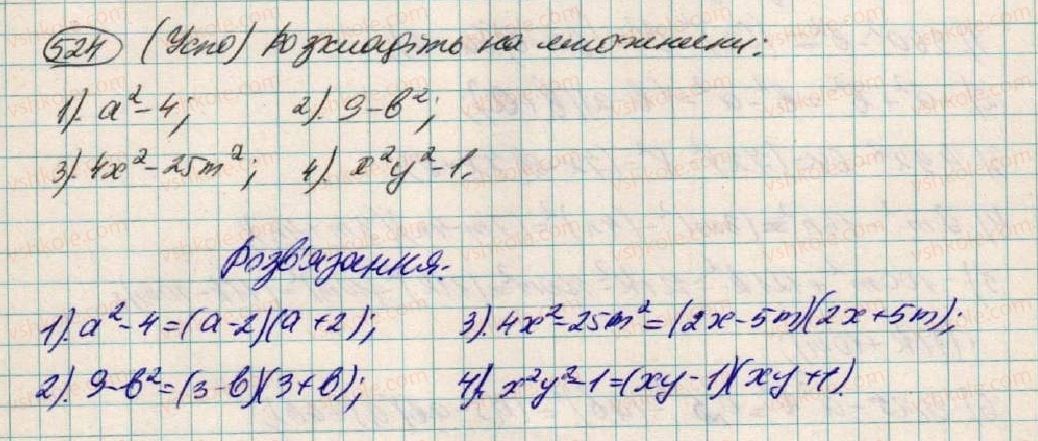 524 (Усно) Розкладіть на множники:
1). a² - 4; 2). 9 - b²;
3). 4x² - 25m²; 4). x²y² - 1.
Розв'язання:
1). a² - 4 = (a - 2)(a + 2); 3). 4x² - 25m² = (2x - 5m)(2x + 5m);
2). 9 - b² = (3 - b)(3 + b); 4). x²y² - 1 = (xy - 1)(xy + 1).